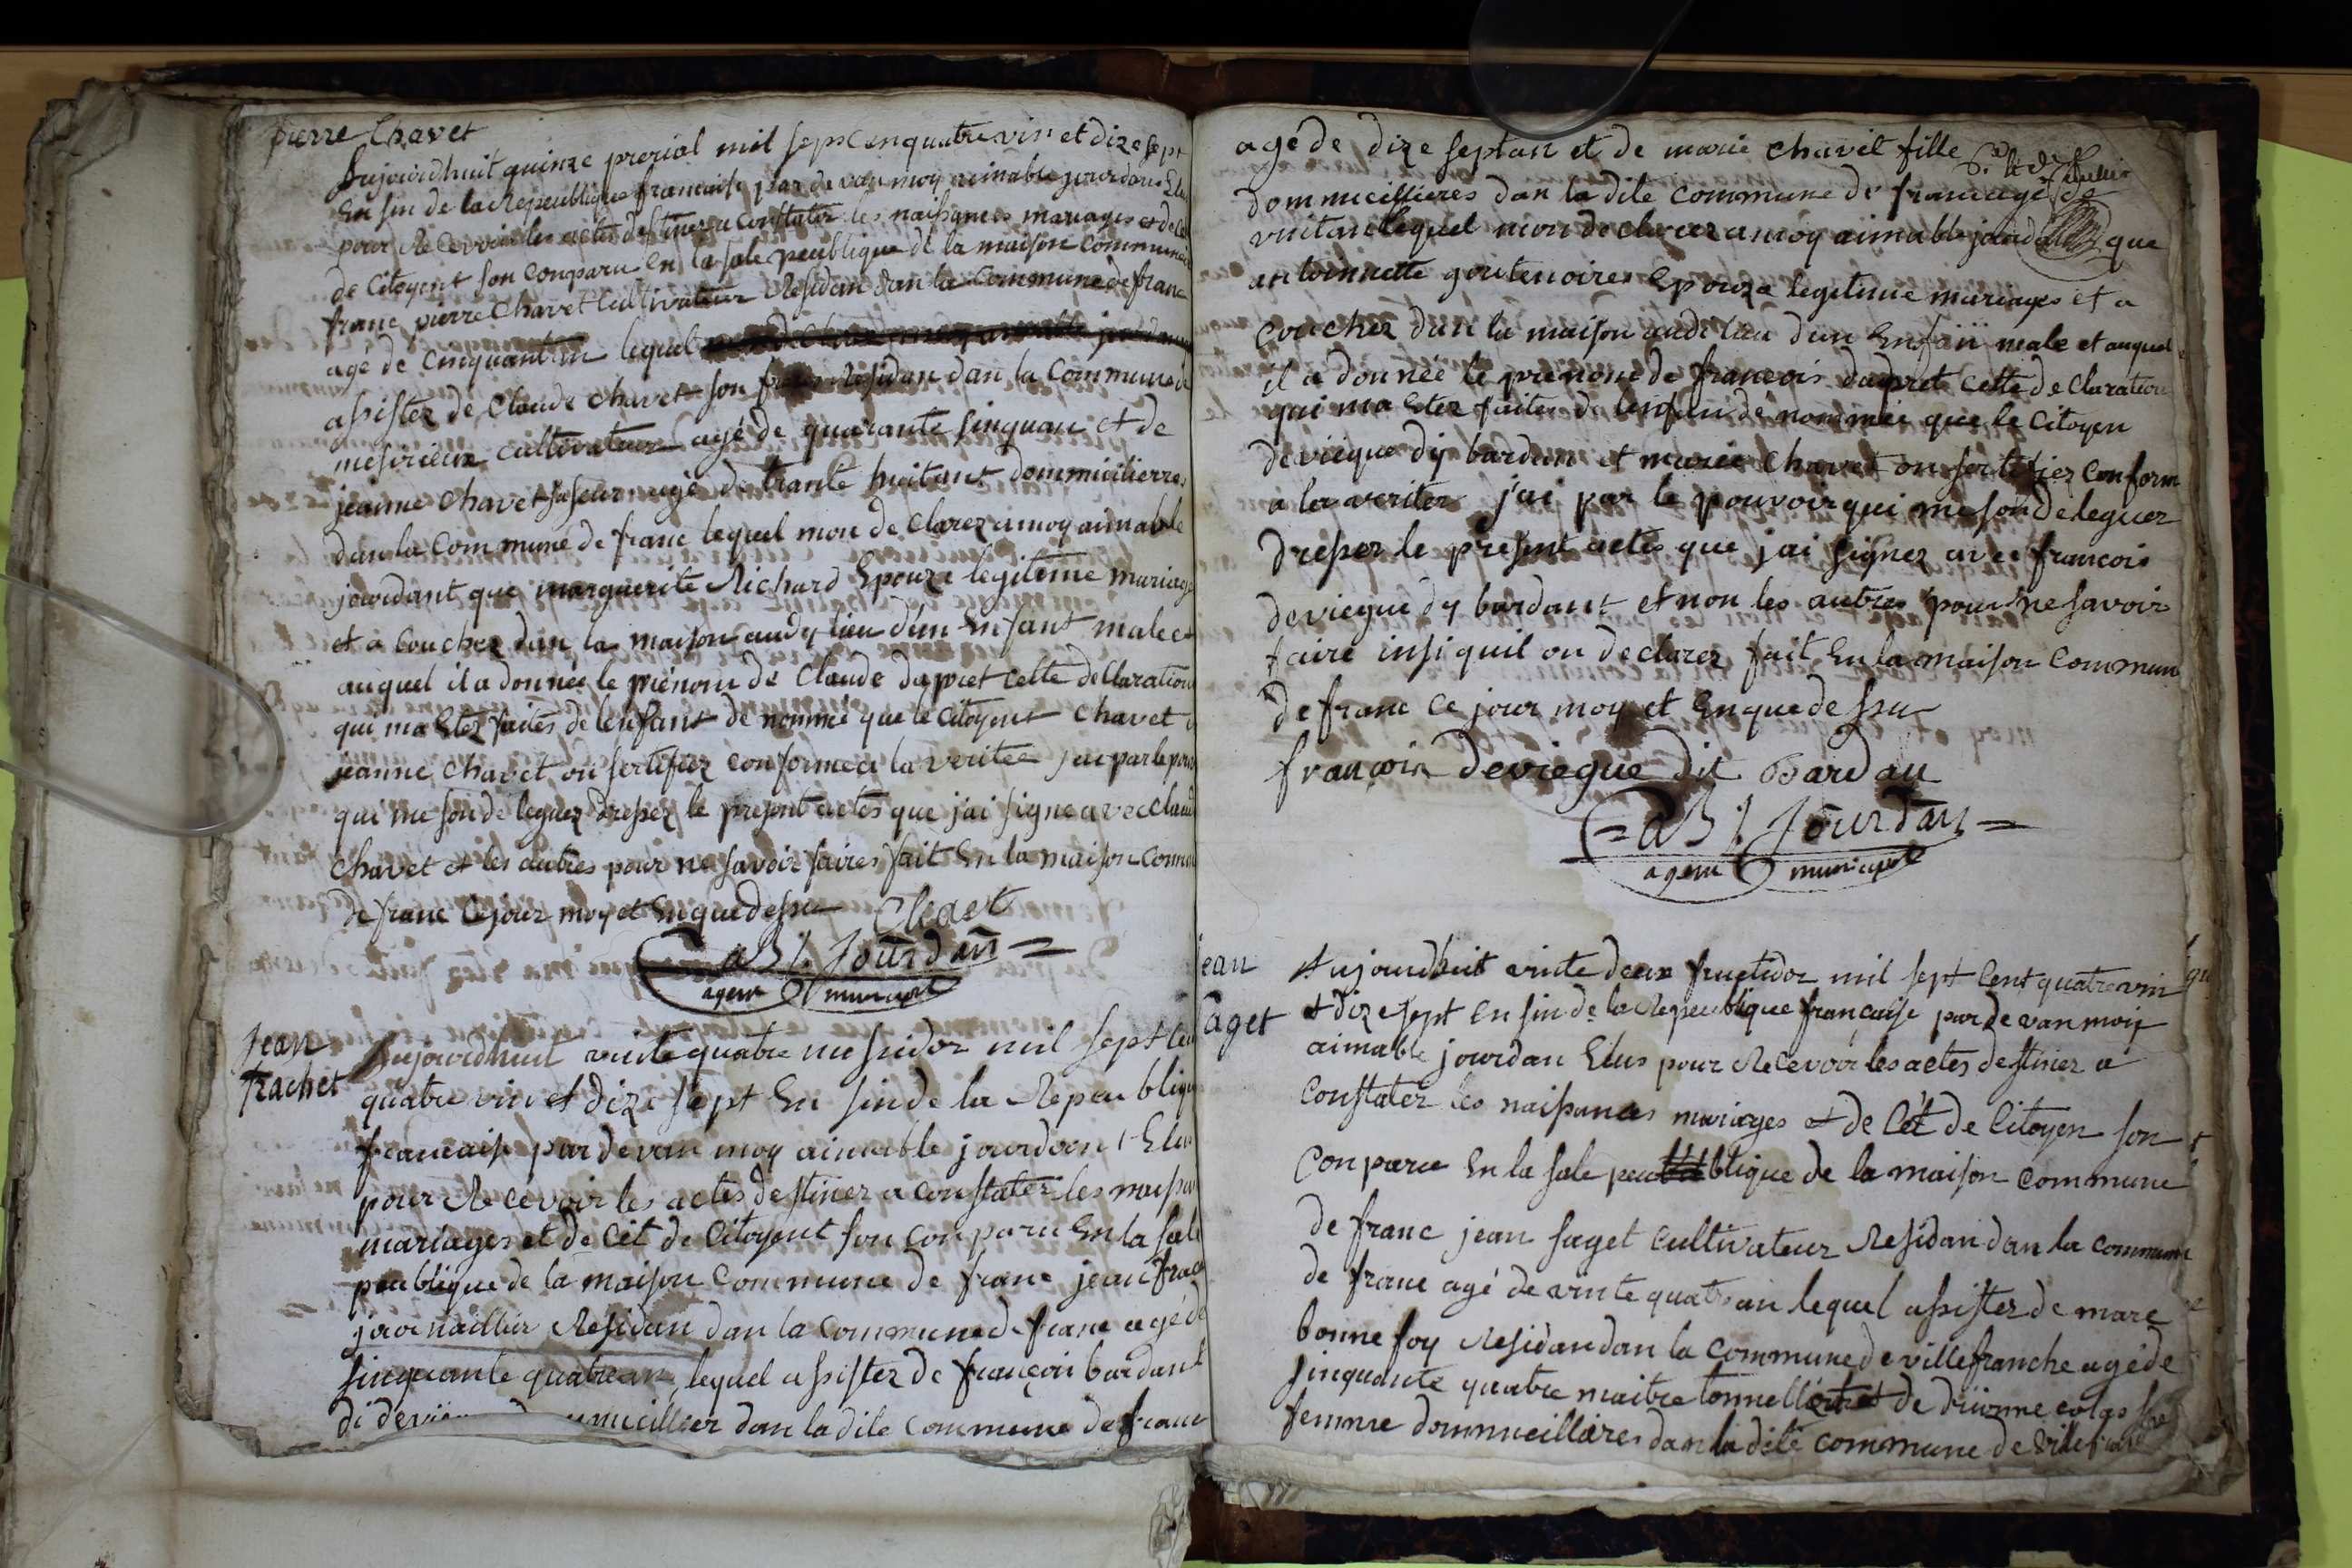 pierre Chavet
Aujourdhuit quinze prerial mil sept cenquatre vin et dize sept
En sin de la Repeublique francaise par devan moy aimable jourdans Elu
pour Recevoir les actes destinez a constater les naissances mariages et de
de Citoyent son conparu en la sale peublique de la maison commune
franc pierre Chavet Cultivateur Residan dan la Commune de franc
agé de cinquant an lequel
assistez de Claude chavet son frere Residan dan la Commune de
messirieux cultivateur agé de quarante sinquan et de
jeanne chavet saseur agé de trante huitant dommicilierres
dan la commune de franc lequel mon de clarez a moy aimable
jourdant que marguerite Richard Epouze legiteme mariage
et a couchez dan la maison audy lieu dun Enfant male et
auquel il a donnée le prenom de Claude dapret cette dellaration
qui ma Etez faites de lenfant de nommé que le Citoyent chavet
jeanne chavet on sertifiez conforme a la veritee jai par le pou
qui me son de leguez dressez le present actes que jai signe avec Claud
chavet et les autres pour ne savoir faires fait En la maison Commu
de franc Ce jour moy et En que dessu Chaet
aB J. Jourdan
agent municipal
Jean
frachet
Aujourdhuit vinte quatre messidor mil sept cen
quatre vin et dize sept En sin de la Repeublique
francaise par devan moy aimable jourdan Elus
pour Recevoir les actes destinez a constater les naissa
mariages et de Cèt de Citoyent son conparu En la sale
peublique de la maison commune de franc jean frac
journaillier Residan dan la commune de franc agé de
sinquante quatre an lequel assistez de françois bardant
di dommicillier dan la dite commune de franc
agé de dize septan et de marie chavet fille
dommicillieres dan la dite commune de franc agé de
vuitan lequel mon de clarez a moy aimable jourdan que
antoinnette goutenoires Epouze legitime mariages et a
couchez dan la maison audi lieu dun Enfan male et auquel
il a donnée le prenom de francois dapret cette de claration
qui ma Etez faites de lenfan dé nommée que le Citoyen
devieque dij bardan et marie chavet on sertifiez conform
a la veritez jai par le pouvoir qui me son deleguez
dressez le present actes que jai signez avec francois
devieque dy bardant et non les autres pour ne savoir
faire insi quil on declarez fait En la maison Commun
de franc ce jour moy et En que dessu
françois devieque dit Bardan
aB J. Jourdan
agent municipal
jean
saget
Aujourdhuit vinte deux fructidor mil sept Cent quatre vin
et dize sept en sin de la Repeublique francaise par de van moiy
aimable jourdan Elus pour Recevoir les actes destinez a
Constater les naissances mariages et de Cèt de Citoyen son
Conparu En la sale peublique de la maison commune
de franc jean saget cultivateur Residan dan la commune
de franc agé de vinte quatre an lequel assistez de marc
bonne foy Residan dan la commune de villefranche agé de
sinquante quatre maitre tonnellier et de
femme dommicillaires dan la dite commune de